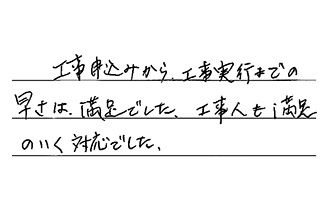 工事申込みから、工事実行までの
早さは、満足でした、工事人も満足
のいく対応でした、